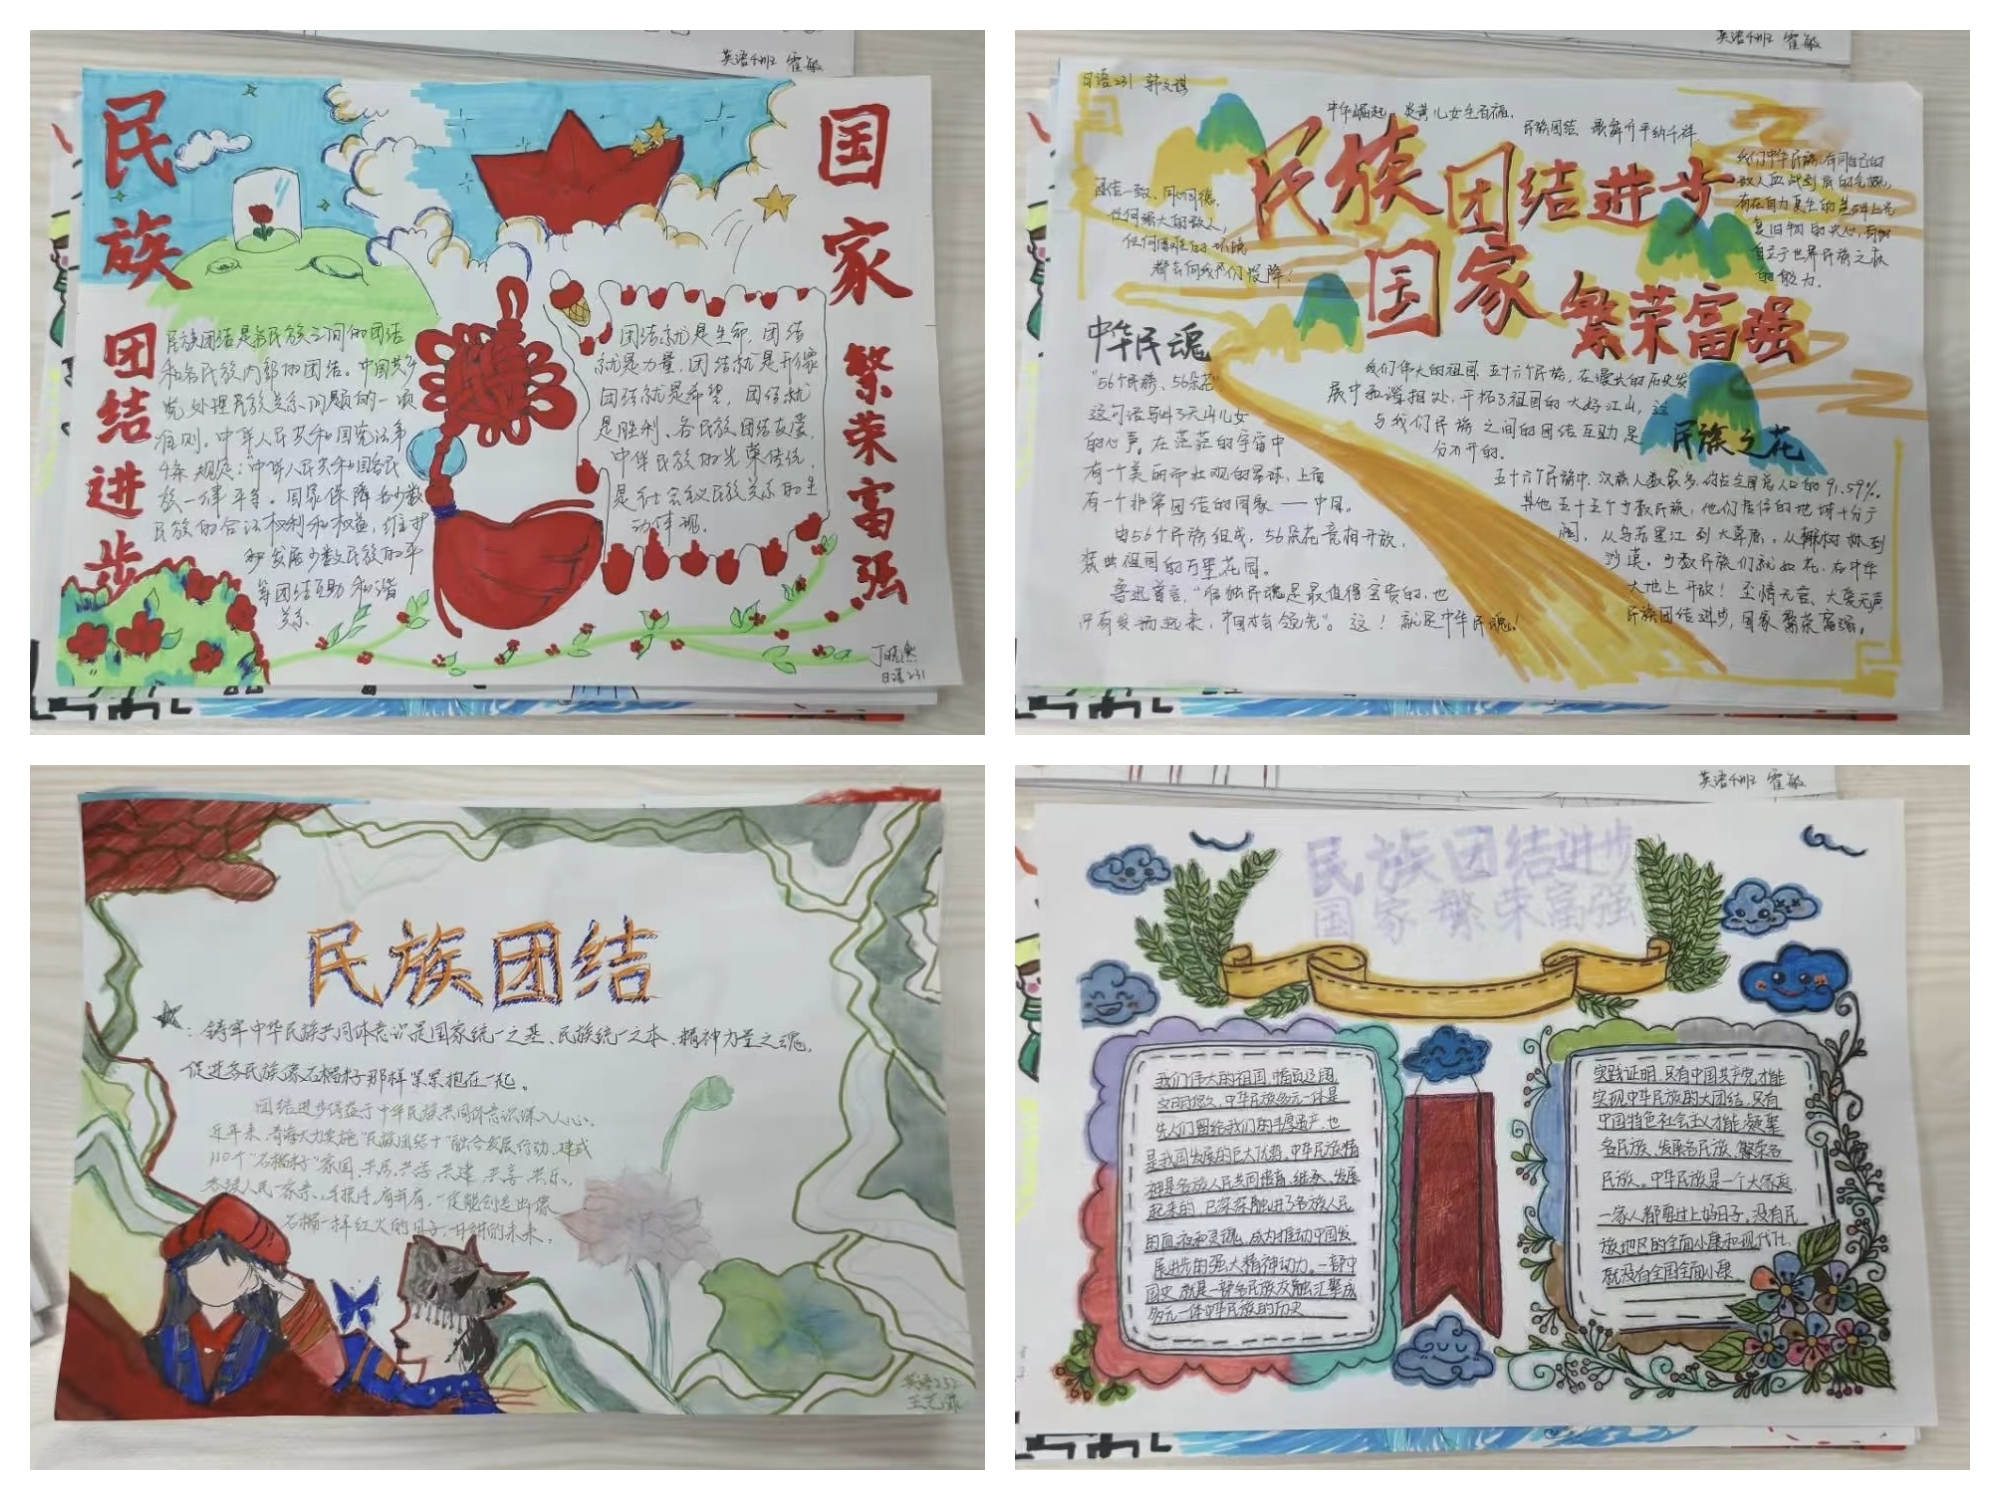 英语4班 霍敏
民族团结进步
国家繁荣富强
民族团结是各民族之间的团结
和各民族内部的团结。中国共产
党处理民族关系问题的一项
准则。中华人民共和国宪法第
4条规定:"中华人民共和国各民
族一律平等。国家保障各少数
民族的合法权利和权益,维护
和发展少数民族的平
等团结互助和谐
关系
团结就是生命,团结
就是力量,团结就是形象
团结就是希望,团结就
是胜利、各民族团结友爱,
中华民族的光荣传统,
是社会主义民族关系的生
动体现。
日语231
英语4班 霍敏
日语231 郭文琪
中华崛起 炎黄儿女生百福,
民族团结 歌舞升平纳千祥
民族团结进步
国家繁荣富强
团结一致、同心同德,
任何强大的敌人,
任何困难的环境
都会向我们投降!
我们中华民族有同自己的
敌人血战到底的气概,
有在自力更生的基础上光
复旧物的决心,有
自立于世界民族之林
的能力.
中华民魂
"56个民族、56朵花"
这句话写出了天山儿女
的心声。在茫茫的宇宙中
有一个美丽而壮观的星球,上面
有一个非常团结的国家——中国。
由56个民族组成,56朵花竞相开放,
装典祖国的万里花园。
鲁迅首言,"唯独民魂是最值得宝贵的,也
只有发扬起来,中国才会领先"。这!就是中华民魂!
我们伟大的祖国 五十六个民族,在漫长的历史发
展中和谐相处,开拓了祖国的大好江山,这
与我们民族之间的团结互助是
分不开的.
民族之花
五十六个民族中,汉族人数最多,约占全国总人口的91.59%.
其他五十五个少数民族,他们居住的地域十分广
阔,从乌苏里江到大草原,从椰树林到
沙漠,少数民族们就如花,在中华
大地上开放!至情无言、大爱无声
民族团结进步,国家繁荣富强。
民族团结
:铸牢中华民族共同体意识是国家统一之基、民族统一之本、精神力量之魂,
促进各民族像石榴籽那样紧紧抱在一起。
团结进步得益于中华民族共同体意识深入人心.
近年来,青海大力实施"民族团结+"融合发展行动,建成
110个"石榴籽"家园,共居、共学、共建、共享、共乐,
各族人民一家亲,手挽手,肩并肩,一定能创造出像
石榴一样红火的日子,甘甜的未来。
英语232
英语4班 霍敏
民族团结进步
国家繁荣富强
我们伟大的祖国,幅员辽阔
文明悠久,中华民族多元一体是
先人们留给我们的丰厚遗产,也
是我国发展的巨大优势。中华民族精
神是各族人民共同培育、继承、发展
起来的,已深深融进了各族人民
的血液和灵魂,成为推动中国发
展进步的强大精神动力。一部中
国史,就是一部各民族交融汇聚成
多元一体中华民族的历史
实践证明,只有中国共产党才能
实现中华民族的大团结,只有
中国特色社会主义才能凝聚
各民族、发展各民族、繁荣各
民族。中华民族是一个大家庭
一家人都要过上好日子,没有民
族地区的全面小康和现代化,
就没有全国全面小康